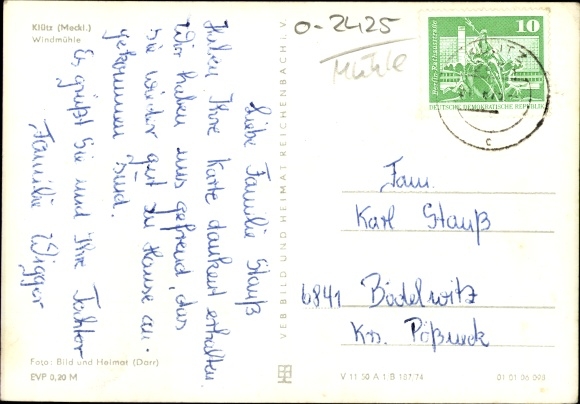 Klütz (Meckl.)
Windmühle
Liebe Familie Stauß
Haben Ihre Karte dankend erhalten.
Wir haben uns gefreut, das
Sie wieder gut zu Hause an-
gekommen sind.
Es grüßt Sie und Ihre Tochter
Familie Wigger
Foto: Bild und Heimat (Darr)
EVP 0,20 M
VEB BILD UND HEIMAT REICHENBACH i. V.
0-2425
Mühle
10
Berlin, Rathausstraße
DEUTSCHE DEMOKRATISCHE REPUBLIK
KLÜTZ
c
Fam.
Karl Stauß
6841 Bodelwitz
Krs. Pößneck
V 11 50 A 1 B 107/74
01 01 06 093